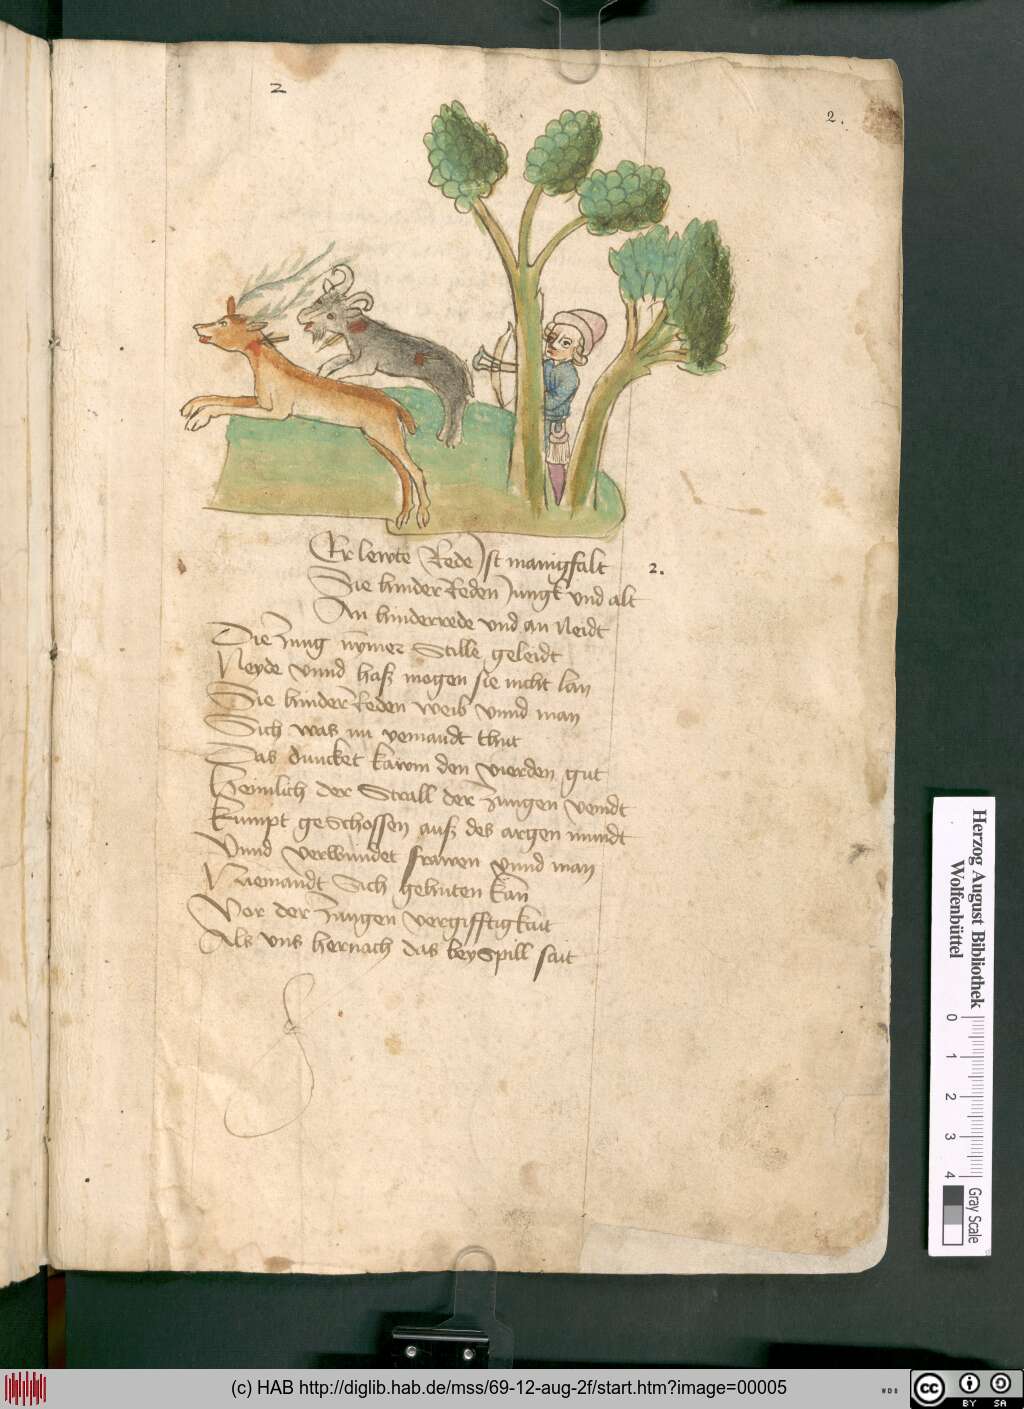 2
2.
Er lewte Rede Ist manigfalt
2.
Sie hinder Reden Jungk vnd alt
An hinderrede vnd an Neidt
Die Zung nymer Stille geleidt
Neyde vnnd hasz mogen sie nicht lan
Sie hinder Reden weib vnnd man
Sich was im yemandt thut
Das duncket kawm den vierden gut
Heimlich der Strall der Zungen
Kumpt geSchossen ausz des argen mundt
Vnnd verwundet frawen vnnd man
Niemandt Sich gehuten kan
Vor der Zungen vergifftigkait
Als vns hernach das beySpill sait
Herzog August Bibliothek
Wolfenbüttel
0
1
2
3
4
Gray Scale
(c) HAB http://diglib.hab.de/mss/69-12-aug-2f/start.htm?image=00005
WDB
cc
BY SA